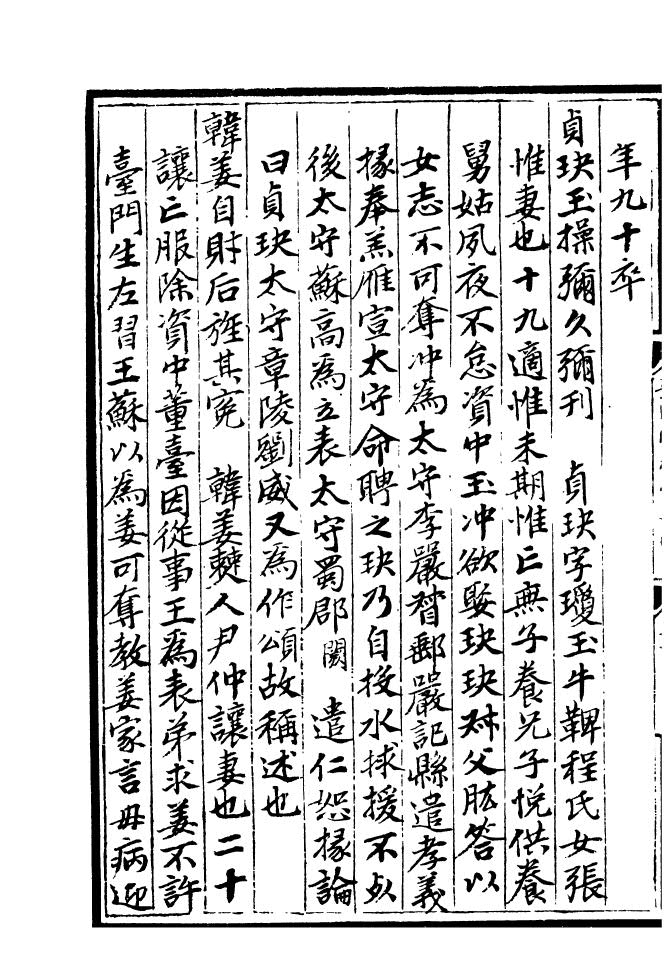 年九十卒
貞玦玉操彌久彌刋　貞玦字瓊玉牛鞞程氏女張
惟妻也十九適惟未期惟亡無子養兄子恱供養
舅姑夙夜不怠資中王冲欲娶玦玦對父肱答以
女志不可奪冲為太守李嚴督郵嚴記縣遣孝義
掾奉羔雁宣太守命聘之玦乃自投水捄援不死
後太守蘇高為立表太守蜀郡闕　遣仁恕掾論
曰貞玦太守章陵劉威又為作頌故稱述也
韓姜自財后旌其寃　韓姜僰人尹仲讓妻也二十
讓亡服除資中董臺因從事王為表弟求姜不許
臺門生左習王蘇以為姜可奪教姜家言母病迎